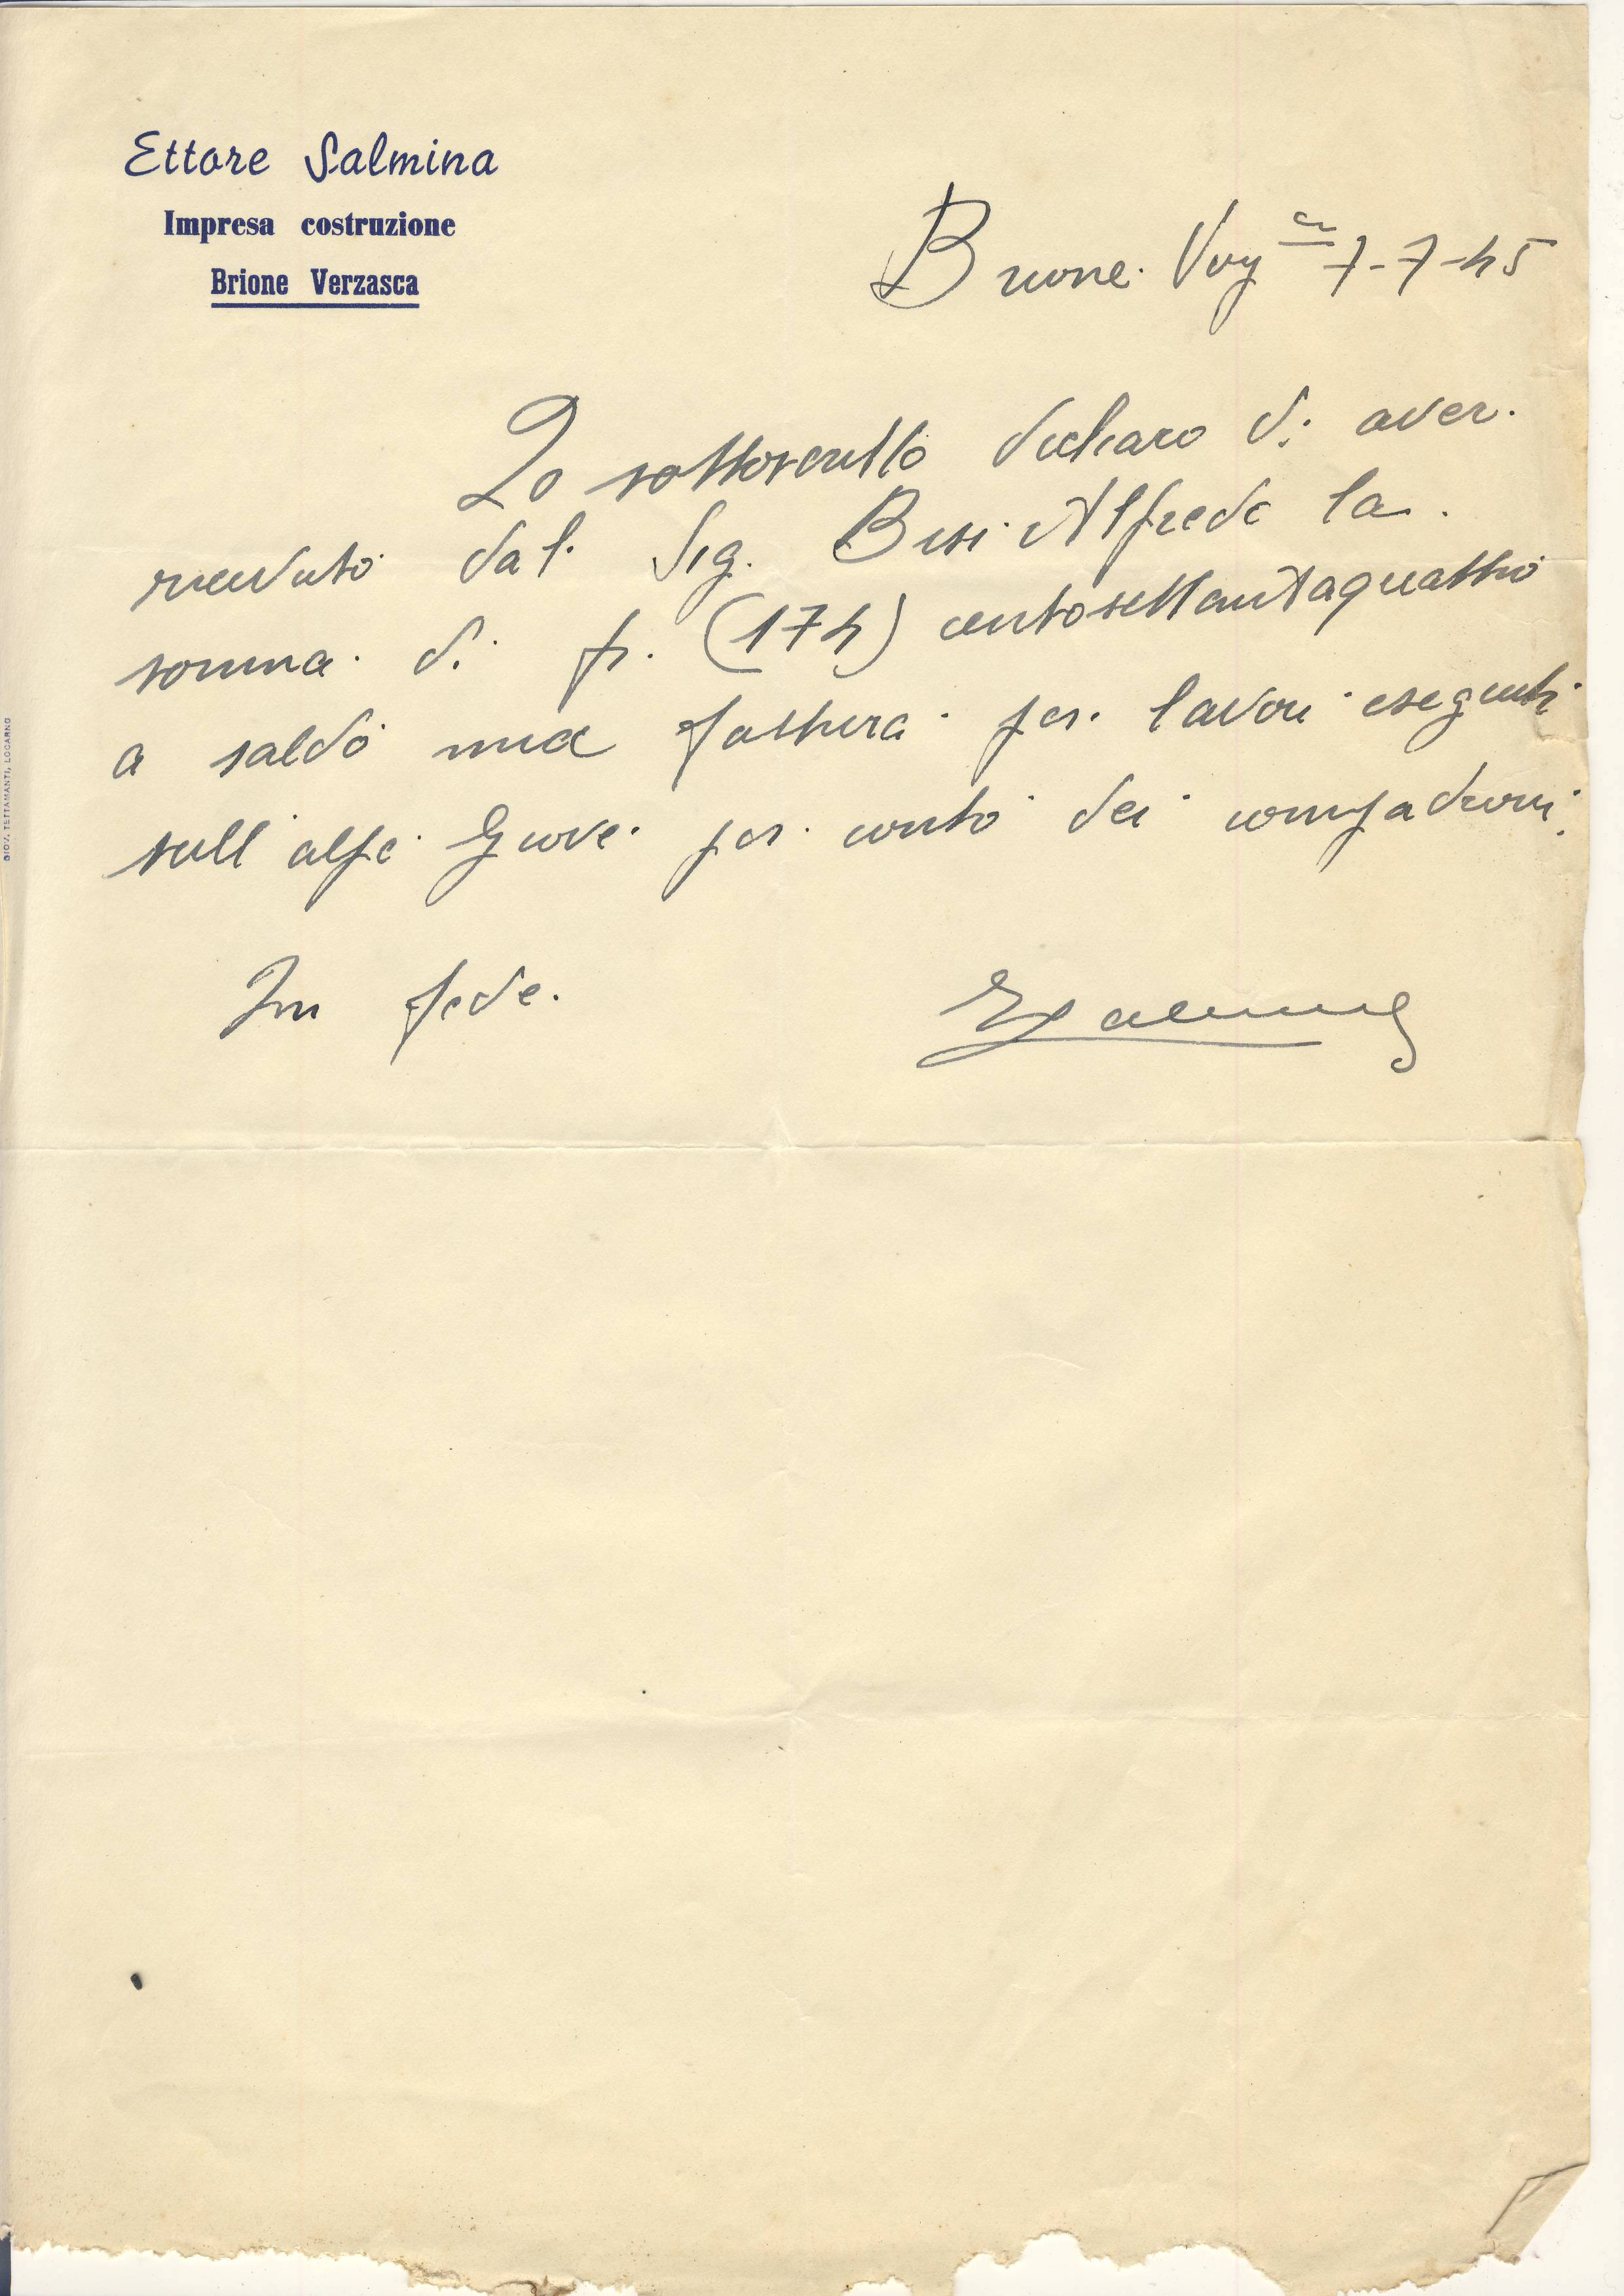 Ettore Salmina
Impresa costruzione
Brione Verzasca
Brione Vrz ca 7-7-45
Io sottoscritto dichiaro di aver
ricevuto dal Sig. Bisi Alfredo la
somma di fr. (174) centosettantaquattro
a saldo mia fattura per lavori eseguiti
sull alpe per conto dei compadroni.
In fede.
ESalmina
GIOV. TETTAMANTI, LOCARNO